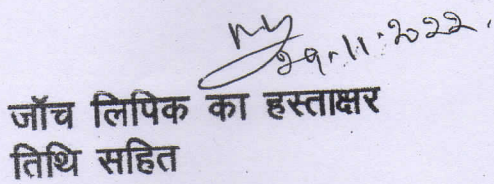 29.11.2022.
जाँच लिपिक का हस्ताक्षर
तिथि सहित